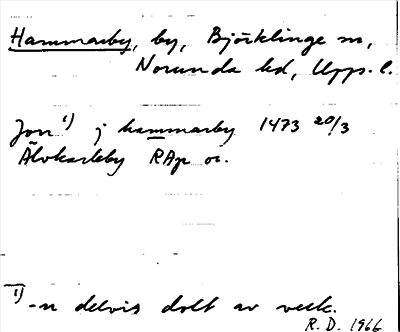 Hammarby, by, Björklinge sn,
Norunda hd, Upps. l.
Jon 1) j hammarby 1473 20/3
Älvkarleby RAp or.
1) -n delvis dolt av veck.
R. D. 1966